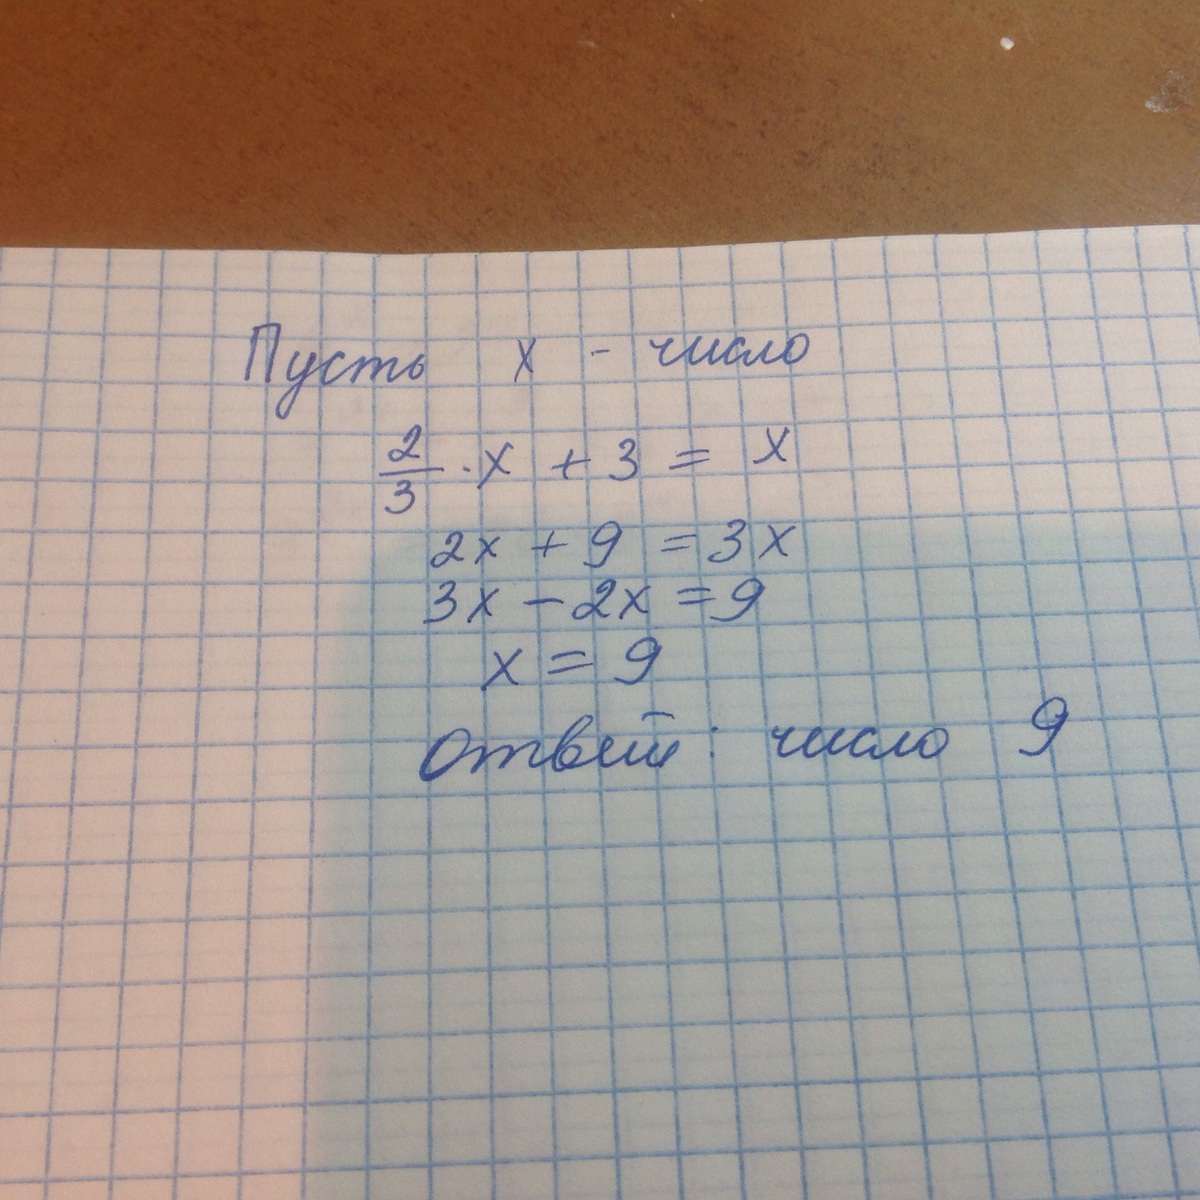 Пусть x - число
2/3 · x + 3 = x
2x + 9 = 3x
3x - 2x = 9
x = 9
Ответ: число 9